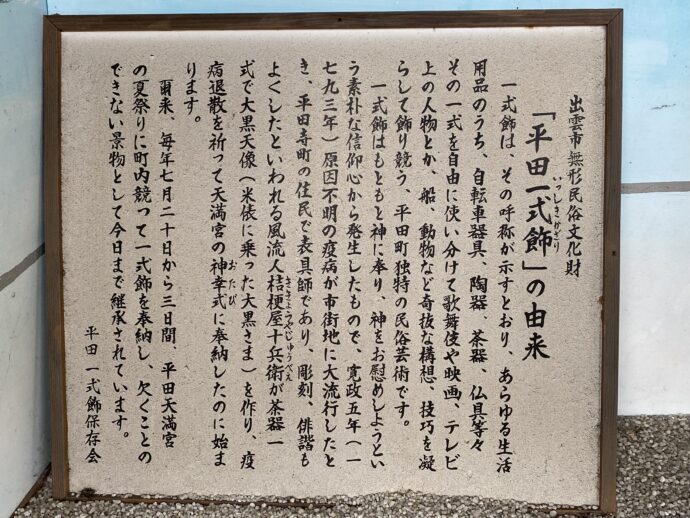 出雲市無形民俗文化財
「平田一式飾」の由来
いっしきかざり
一式飾は、その呼称が示すとおり、あらゆる生活
用品のうち、自転車器具、陶器、茶器、仏具等々
その一式を自由に使い分けて歌舞伎や映画、テレビ
上の人物とか、船、動物など奇抜な構想、技巧を凝
らして飾り競う、平田町独特の民俗芸術です。
一式飾はもともと神に奉り、神をお慰めしようとい
う素朴な信仰心から発生したもので、寛政五年（一
七九三年）原因不明の疫病が市街地に大流行したと
き、平田寺町の住民で表具師であり、彫刻、俳諧も
よくしたといわれる風流人桔梗屋十兵衛が茶器一
ききょうやじゅうべえ
式で大黒天像（米俵に乗った大黒さま）を作り、疫
病退散を祈って天満宮の神幸式に奉納したのに始ま
おたび
ります。
爾来、毎年七月二十日から三日間、平田天満宮
の夏祭りに町内競って一式飾を奉納し、欠くことの
できない景物として今日まで継承されています。
平田一式飾保存会